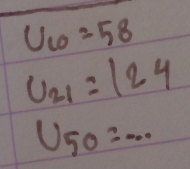 U10=58
U21=124
U50=...